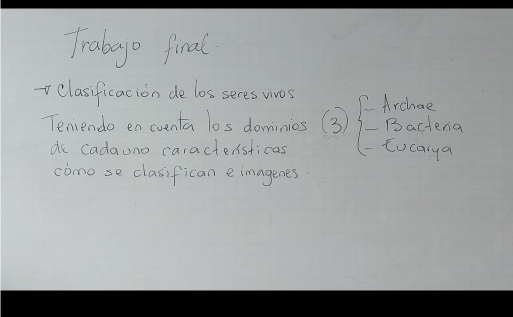 Trabajo final.
Clasificación de los seres vivos
Teniendo en cuenta los dominios (3) { - Archae
- Bacteria
- Eucarya
de cada uno características
cómo se clasifican e imagenes.